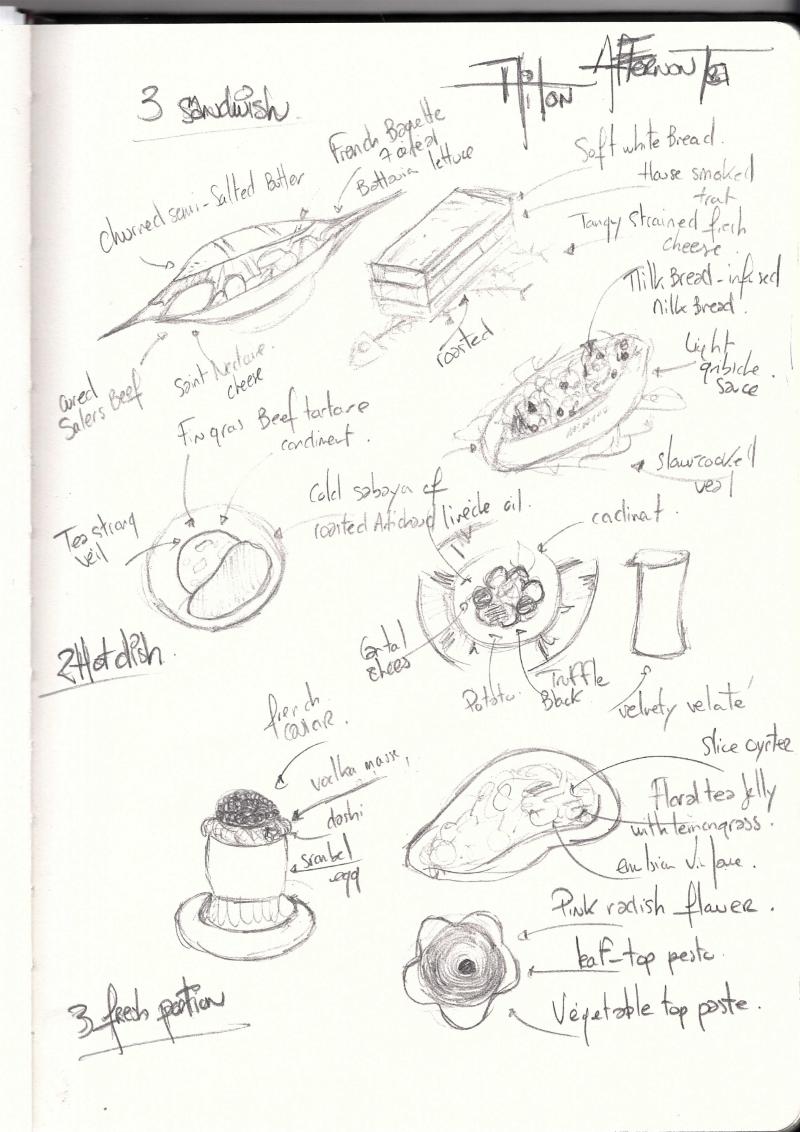 Afternon Tea
3 sandwish
French Baguette
Battavia lettuce
Churned semi-Salted Butter
Soft white Bread.
House smoked
trout
Tangy strained fresh
cheese.
Milk Bread-infused
Milk Bread.
roasted
Light
gribiche
sauce
cured
Salers Beef
Saint Nectaire
cheese
Fin gras Beef tartare
condiment.
slow-cooked
veal
Cold sabaya of
roasted Artichaud
oil.
Tea
veil
2 Hot dish.
cheese
Potato.
Truffle
Black
velvety velouté
french
caviar.
vodka
dashi
egg
slice oyster
Floral tea Jelly
with lemongrass.
Pink radish flower.
leaf-top pesto.
Végétable top paste.
3 fresh portion